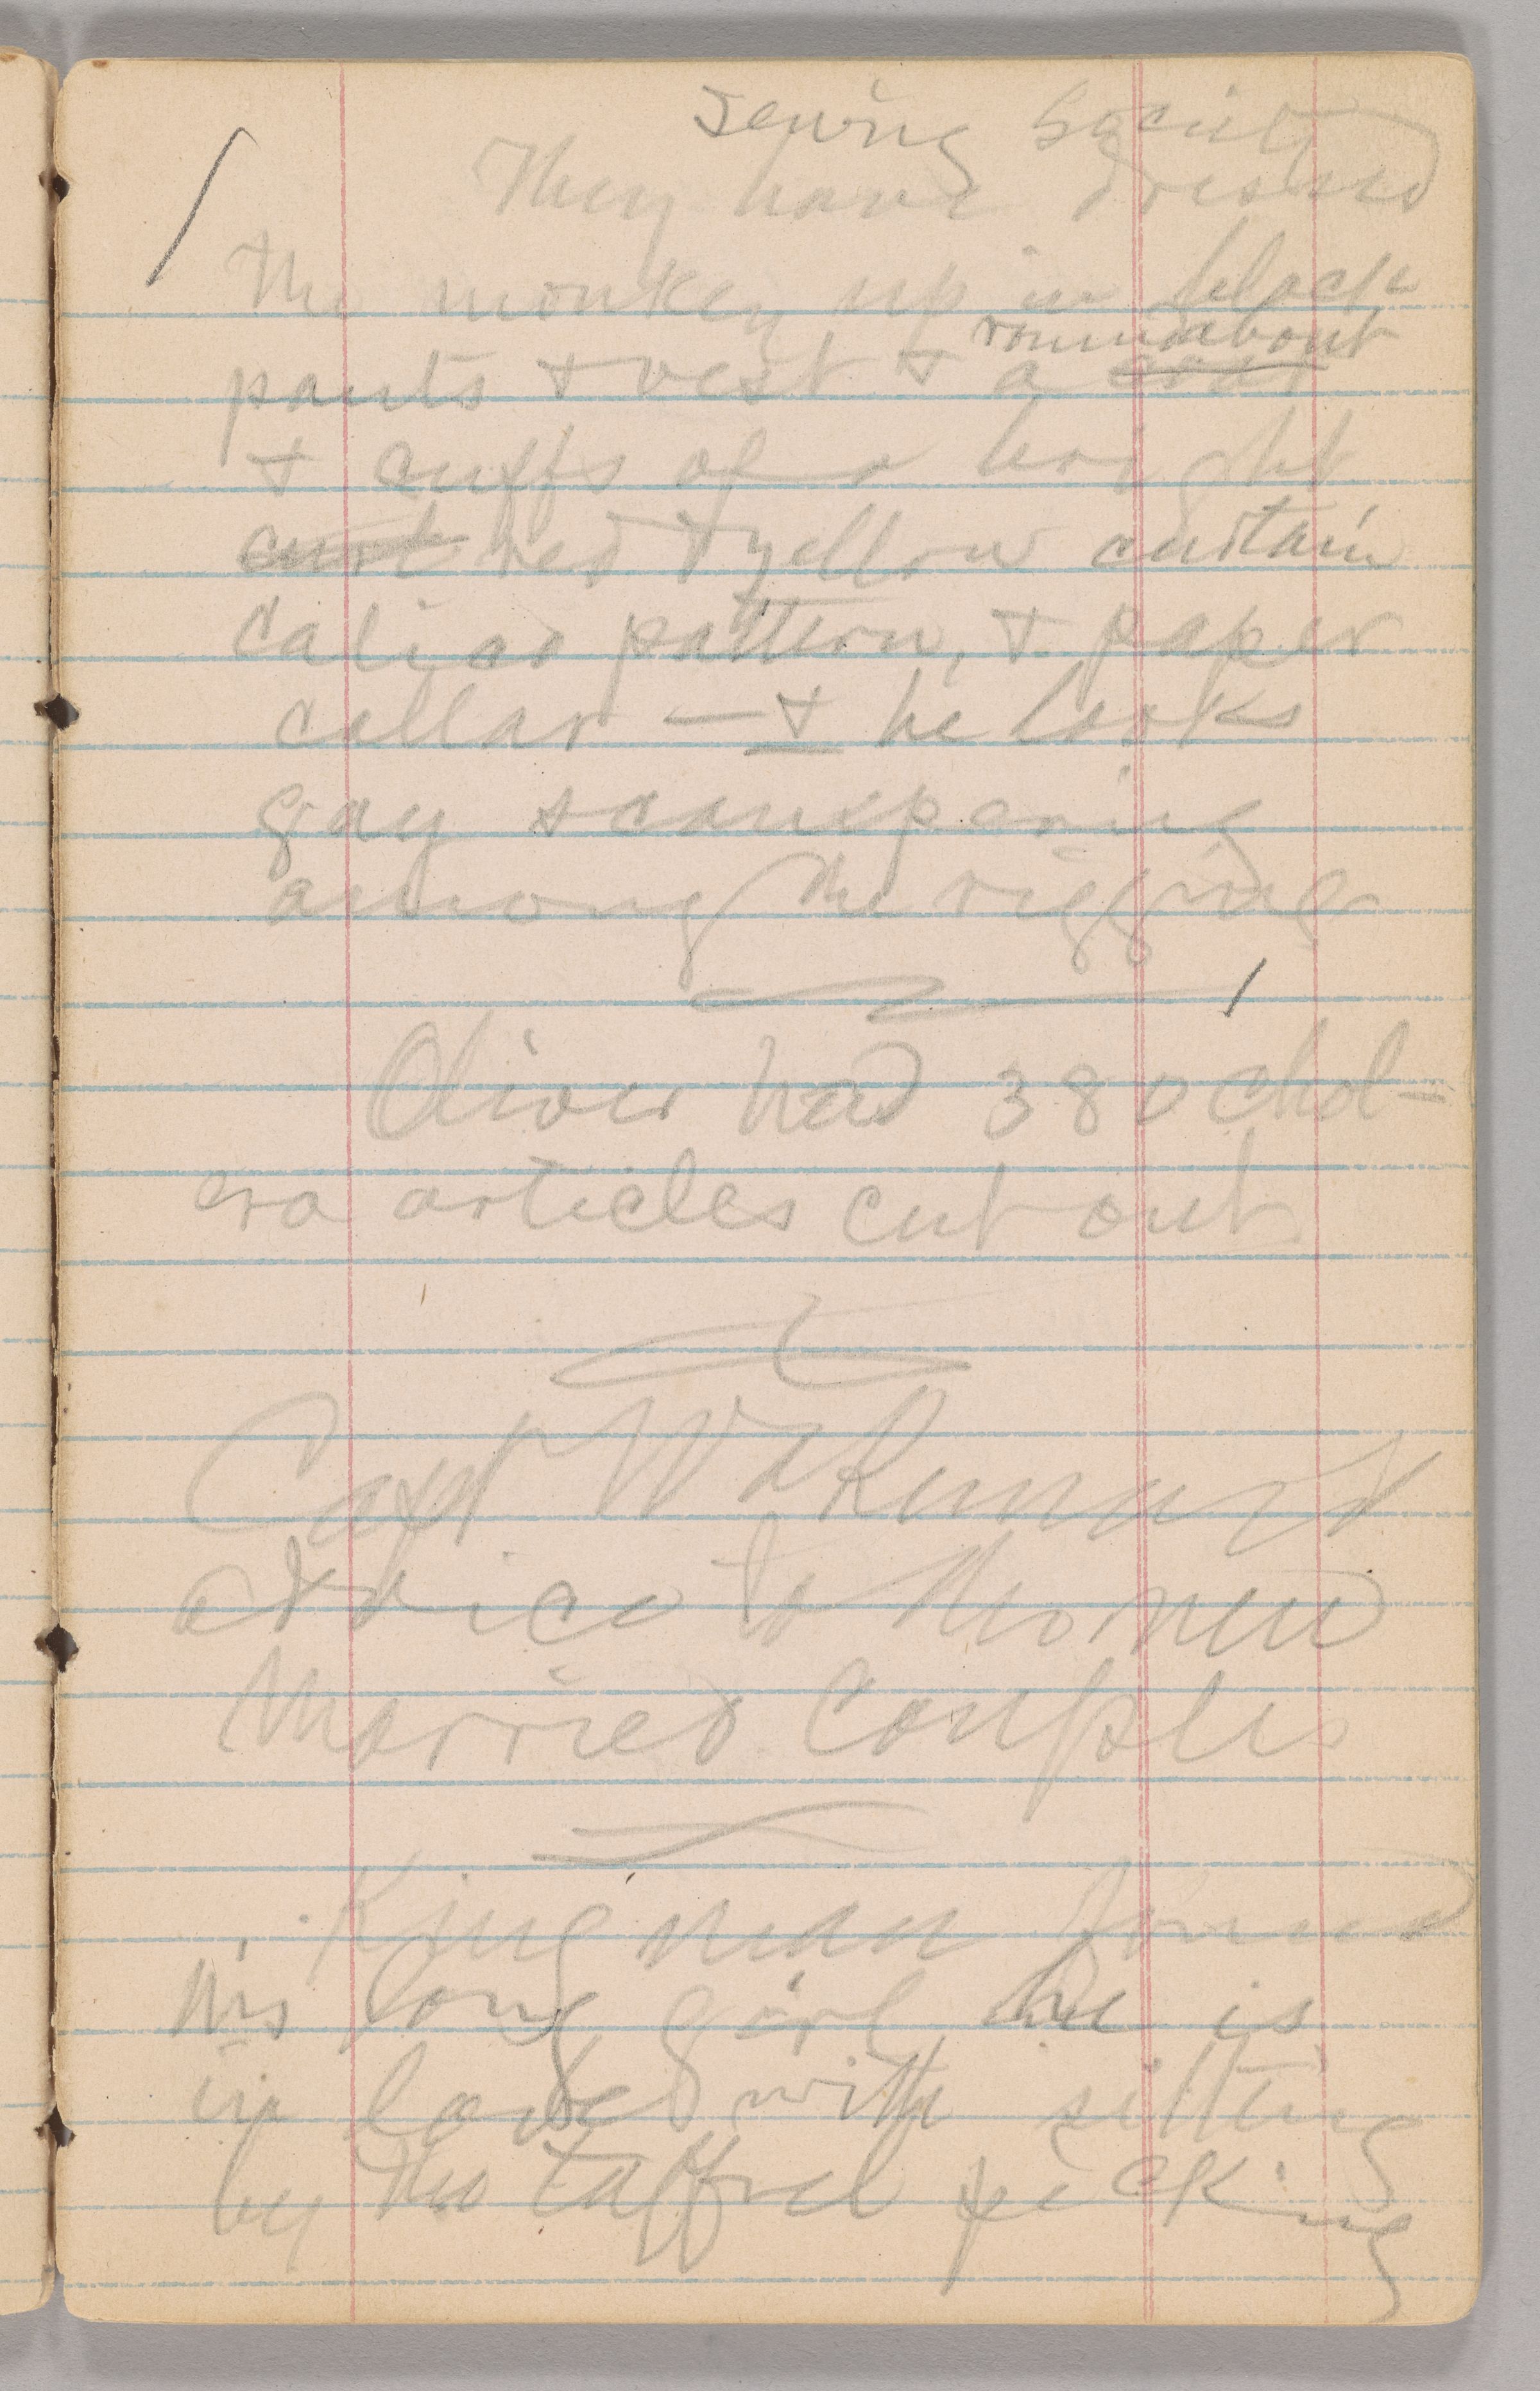 Sewing Society
They have dressed
the monkey up in black
roundabout
pants & vest & a coat
& cuffs of a bright
curt red & yellow curtain
calico pattern, & paper
collar — & he looks
gay scampering
among the rigging
Oliver had 380 chol-
era articles cut out
Capt Wakeman's
advice to the new
Married Couples
Kingman found
his long girl he is
in love with sitting
by the taffrel picking